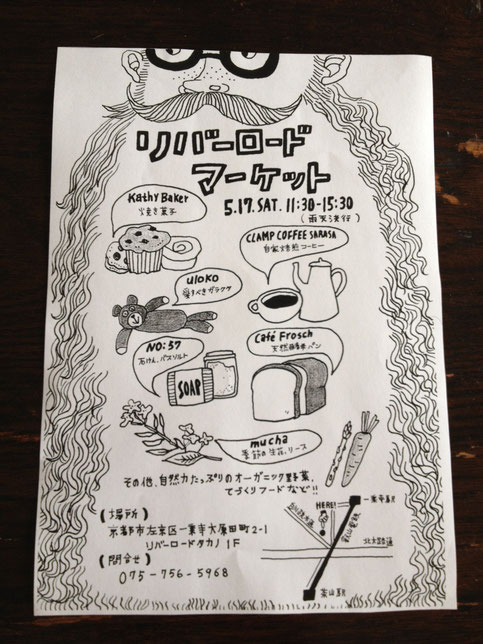 リバーロード
マーケット
5.17.SAT. 11:30-15:30
(雨天決行)
Kathy Baker
焼き菓子
CLAMP COFFEE SARASA
自家焙煎コーヒー
uloko
愛すべきガラクタ
NO:57
石けん、バスソルト
SOAP
Café Frosch
天然酵母パン
mucha
季節の生花、リース
その他、自然力たっぷりのオーガニック野菜、
てづくりフードなど!!
(場所)
京都市左京区一乗寺大原田町2-1
リバーロードタカノ 1F
(問合せ)
075-756-5968
一乗寺駅
HERE!
叡山電鉄
北大路通
茶山駅